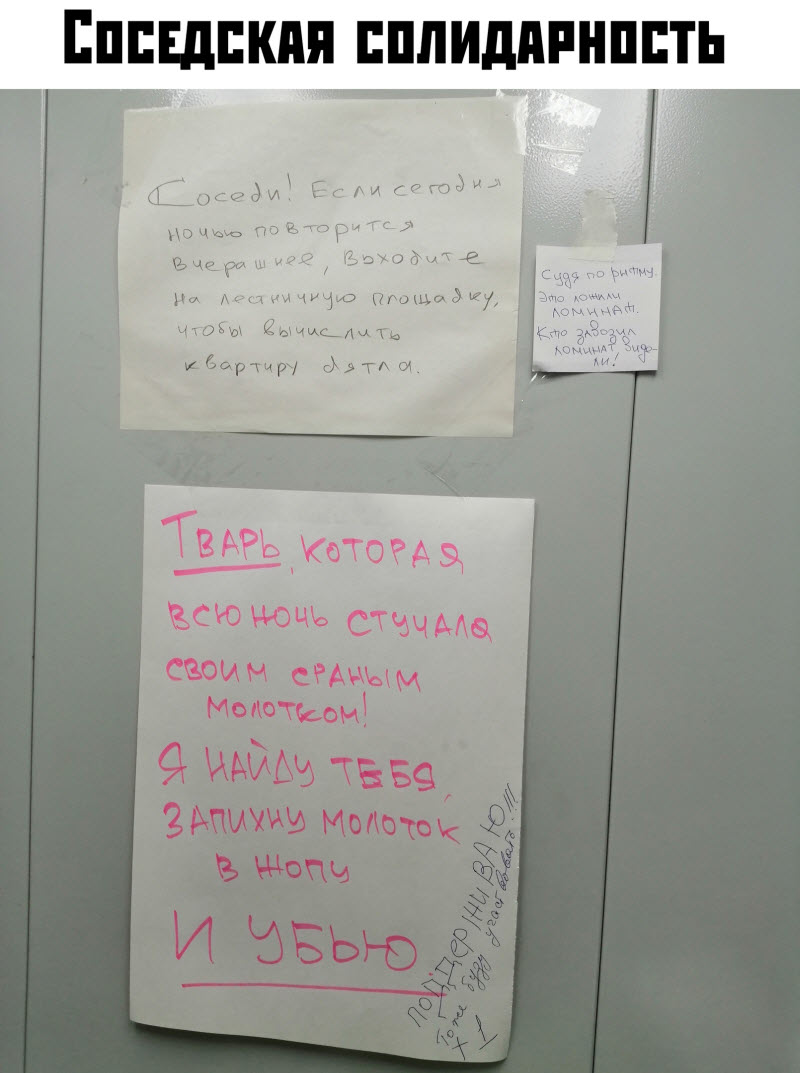 Соседская солидарность
Соседи! Если сегодня
ночью повторится
вчерашнее, выходите
на лестничную площадку,
чтобы вычислить
квартиру дятла.
Судя по ритму.
Это ложили
ломинат.
Кто завозил
ломинат вида-
ли!
Тварь, которая
всю ночь стучала
своим сраным
молотком!
Я найду тебя,
запихну молоток
в жопу
и убью
ПОДДЕРЖИВАЮ!!!
Тоже буду участвовать!